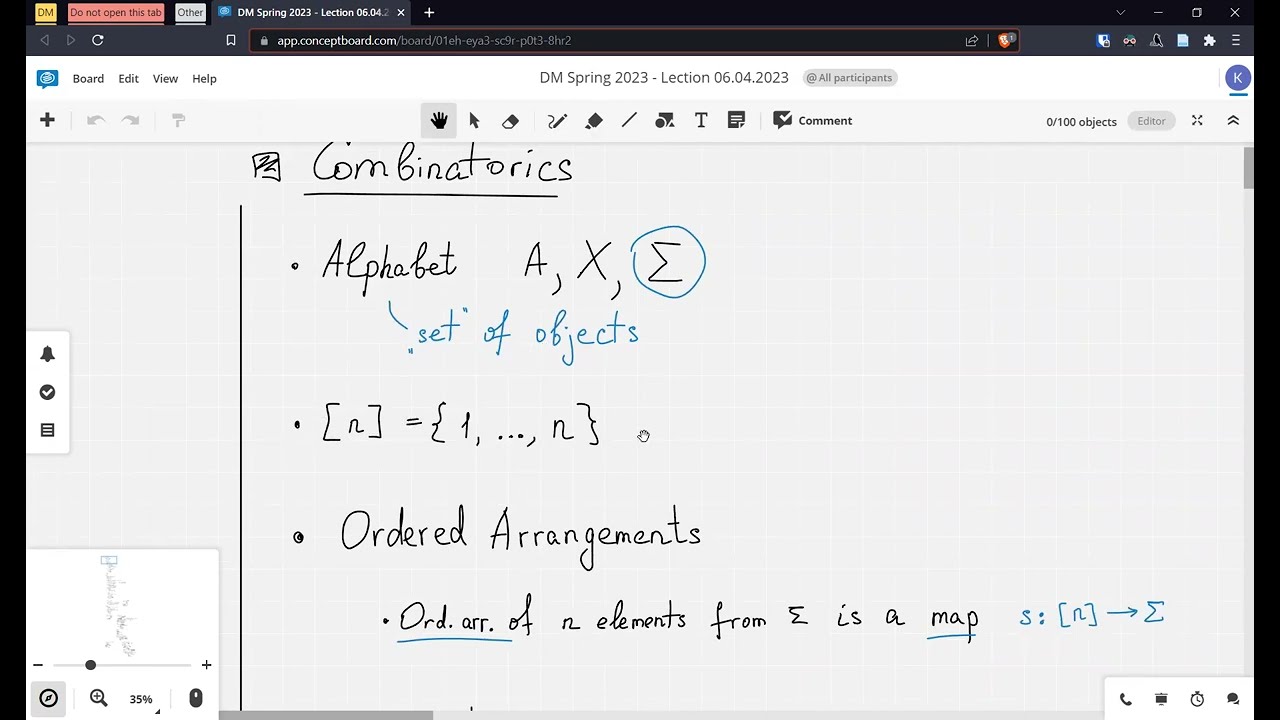 DM
Do not open this tab
Other
DM Spring 2023 - Lection 06.04.2
app.conceptboard.com/board/01eh-eya3-sc9r-p0t3-8hr2
1
Board Edit View Help
DM Spring 2023 - Lection 06.04.2023
@ All participants
K
T
Comment
0/100 objects
Editor
Combinatorics
• Alphabet A, X, Σ
"set" of objects
• [n] = { 1, ..., n }
• Ordered Arrangements
• Ord. arr. of n elements from Σ is a map s: [n] → Σ
35%